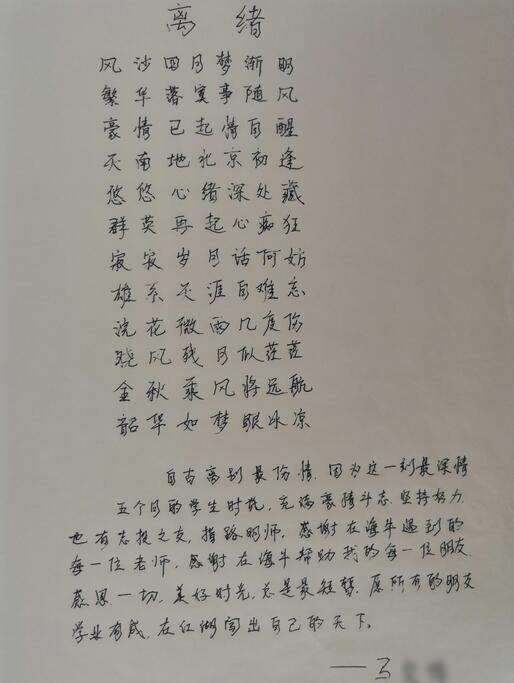 离绪
风沙四月梦渐明
繁华落寞事随风
豪情已起情自醒
天南地北京初逢
悠悠心绪深处藏
群英再起心痴狂
寂寂岁月话何妨
雄系天涯自难忘
浣花微雨几度伤
晓风残月似茫茫
金秋乘风将远航
韶华如梦眼冰凉
自古离别最伤情，因为这一刻最深情
五个月的学生时光，充满豪情斗志，坚持努力，
也有志投之友，指路明师，感谢在海牛遇到的
每一位老师，感谢在海牛帮助我的每一位朋友
感恩一切，美好时光，总是最短暂，愿所有的朋友
学业有成，在江湖闯出自己的天下。